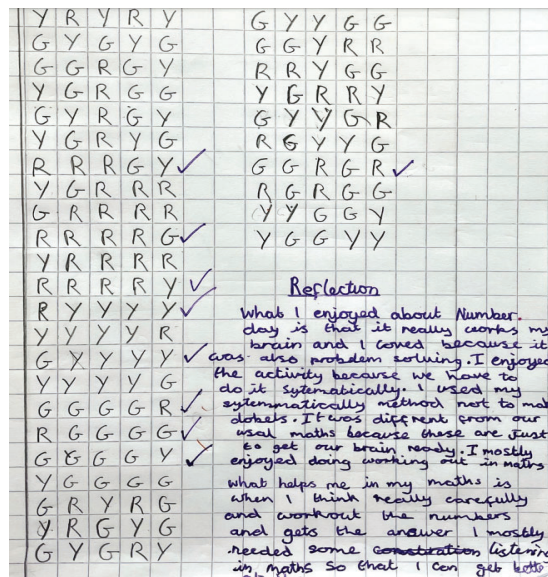 Y R Y R Y
G Y G Y G
G G R G Y
Y G R G G
G Y R G Y
Y G R Y G
R R R G Y
Y G R R R
G R R R R
R R R R G
Y R R R R
R R R R Y
R Y Y Y Y
Y Y Y Y R
G Y Y Y Y
Y Y Y Y G
G G G G R
R G G G G
G G G G Y
Y G G G G
G R Y R G
Y R G Y G
G Y G R Y
G Y Y G G
G G Y R R
R R Y G G
Y G R R Y
G Y Y G R
R G Y Y G
G G R G R
R G R G G
Y Y G G Y
Y G G Y Y
Reflection
What I enjoyed about Number
day is that it really works my
brain and I loved because it
was also problem solving. I enjoyed
the activity because we have to
do it sytematically. I used my
sytemmatically method not to mak
dobels. It was diffrent from our
usal maths because these are just
to get our brain ready. I mostly
enjoyed doing working out in maths
what helps me in my maths is
when I think really carefully
and workout the numbers
and gets the answer I mostly
needed some listening
in maths so that I can get